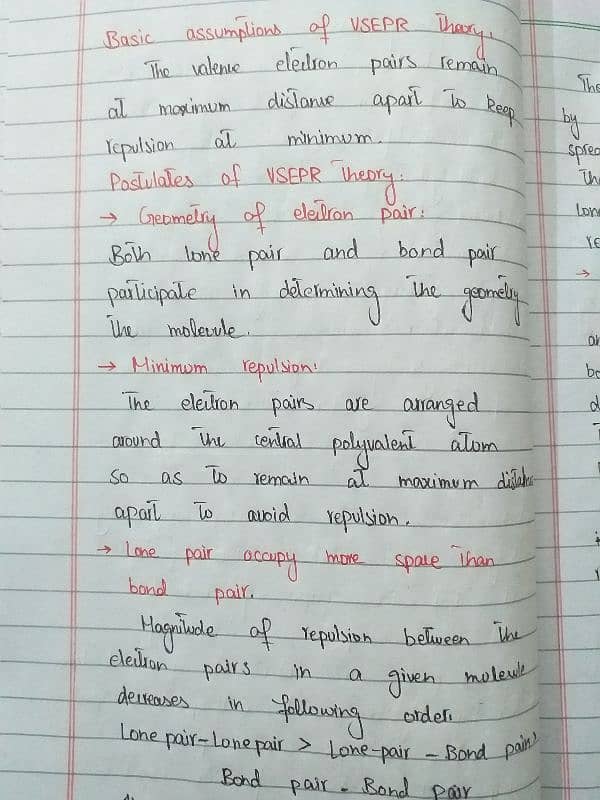 Basic assumptions of VSEPR Theory:
The valence electron pairs remain
at maximum distance apart to keep
repulsion at minimum.
Postulates of VSEPR Theory:
→ Geometry of electron pair:
Both lone pair and bond pair
participate in determining the geometry
the molecule.
→ Minimum repulsion:
The electron pairs are arranged
around the central polyvalent atom
so as to remain at maximum distance
apart to avoid repulsion.
→ Lone pair occupy more space than
bond pair.
Magnitude of repulsion between the
electron pairs in a given molecule
decreases in following order:
Lone pair-Lone pair > Lone-pair - Bond pair>
Bond pair - Bond pair
The
by
spread
→